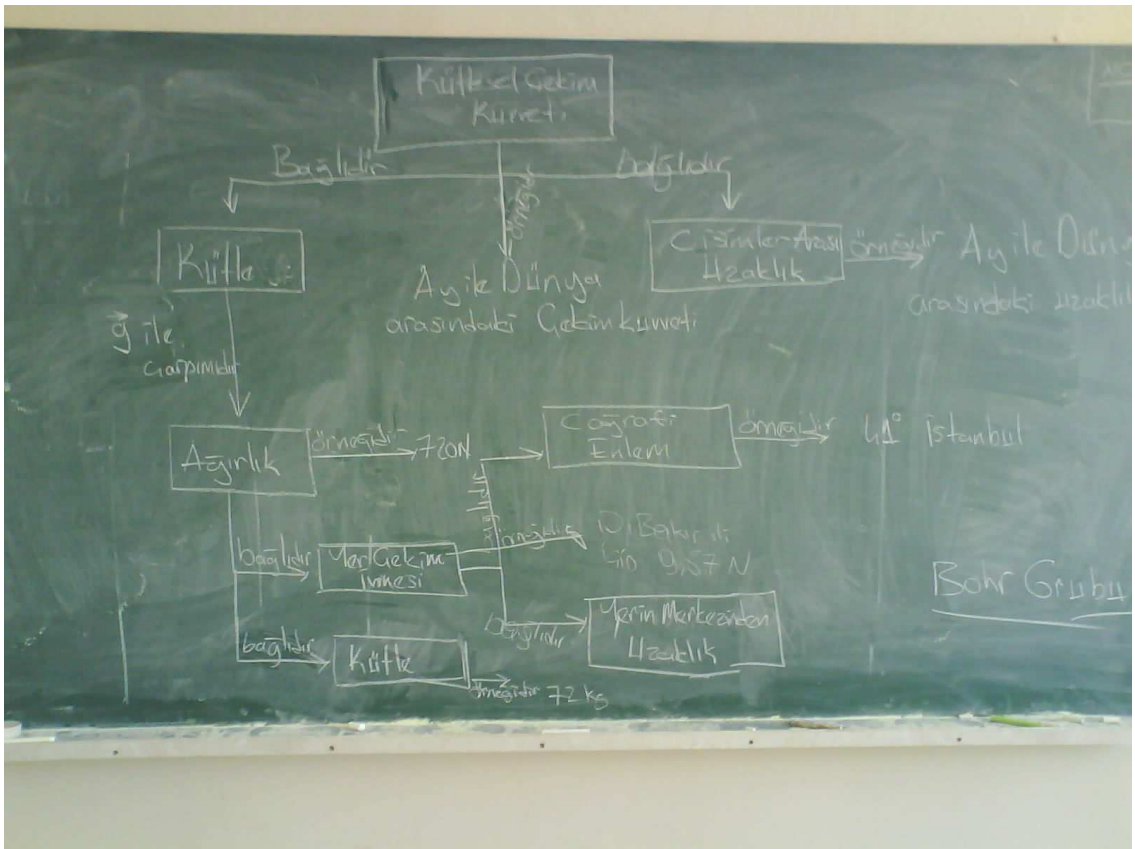 Kütlesel Çekim
Kuvveti
Bağlıdır
örneğidir
bağlıdır
Kütle
Ay ile Dünya
arasındaki Çekim kuvveti
Cisimler Arası
Uzaklık
örneğidir
Ay ile Düny
arasındaki uzaklı
g ile
çarpımıdır
Ağırlık
örneğidir
720N
Coğrafi
Enlem
örneğidir
41° İstanbul
bağlıdır
Yer Çekim
İvmesi
örneğidir
için 9,57 N
bağlıdır
Yerin Merkezinden
Uzaklık
bağlıdır
Kütle
örneğidir 72 kg
Bohr Grubu